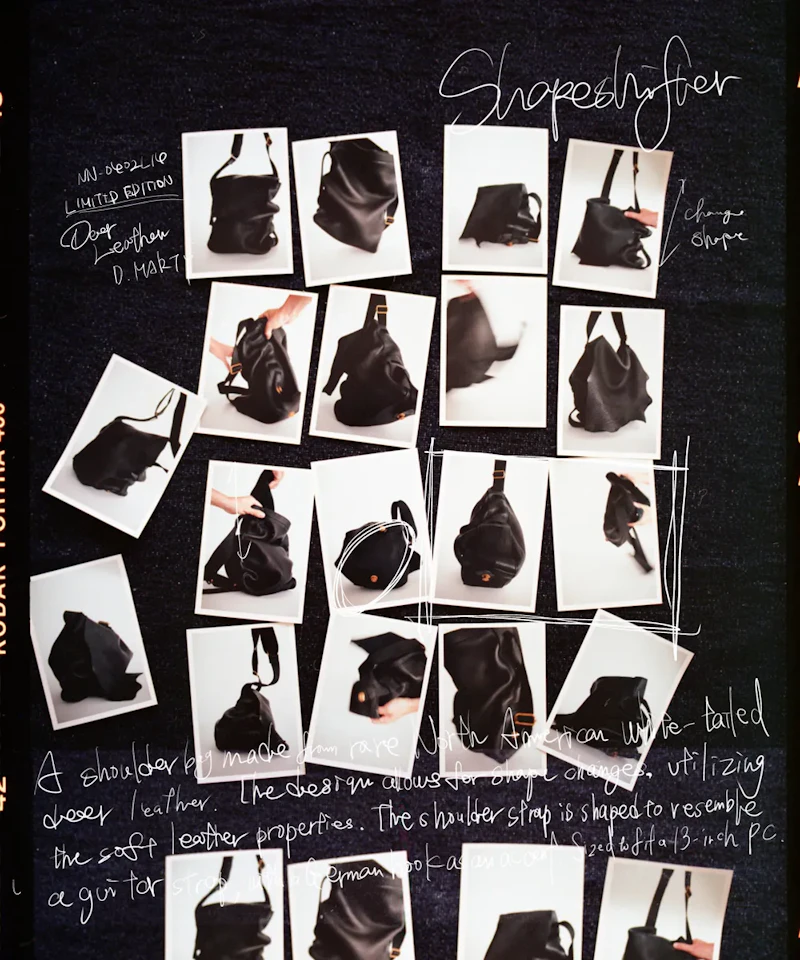 Shapeshifter
NN-0402L16
LIMITED EDITION
Deer
Leather
D. MART
change
shape
A shoulder bag made from rare North American white-tailed
deer leather. The design allows for shape changes, utilizing
the soft leather properties. The shoulder strap is shaped to resemble
a guitar strap, with a German hook as an accent. Sized to fit a 13-inch PC.
KODAK PORTRA 400
42